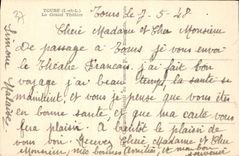 37
TOURS (I.-et-L.)
Le Grand Théâtre
Tours le 7-5-48
Cher Madame et Cher Monsieur
De passage a Tours je vous envoi
le Théatre Français. j'ai fait bon
voyage j'ai beau temps, la santé se
maintient, et vous je pense que vous êtes
en bonne santé, et que ma carte vous
fera plaisir. A bientôt le plaisir de
vous Recevez Chère Madame et Cher
Monsieur, mes bonnes Amitiés, et mon bon
souvenir
Simone